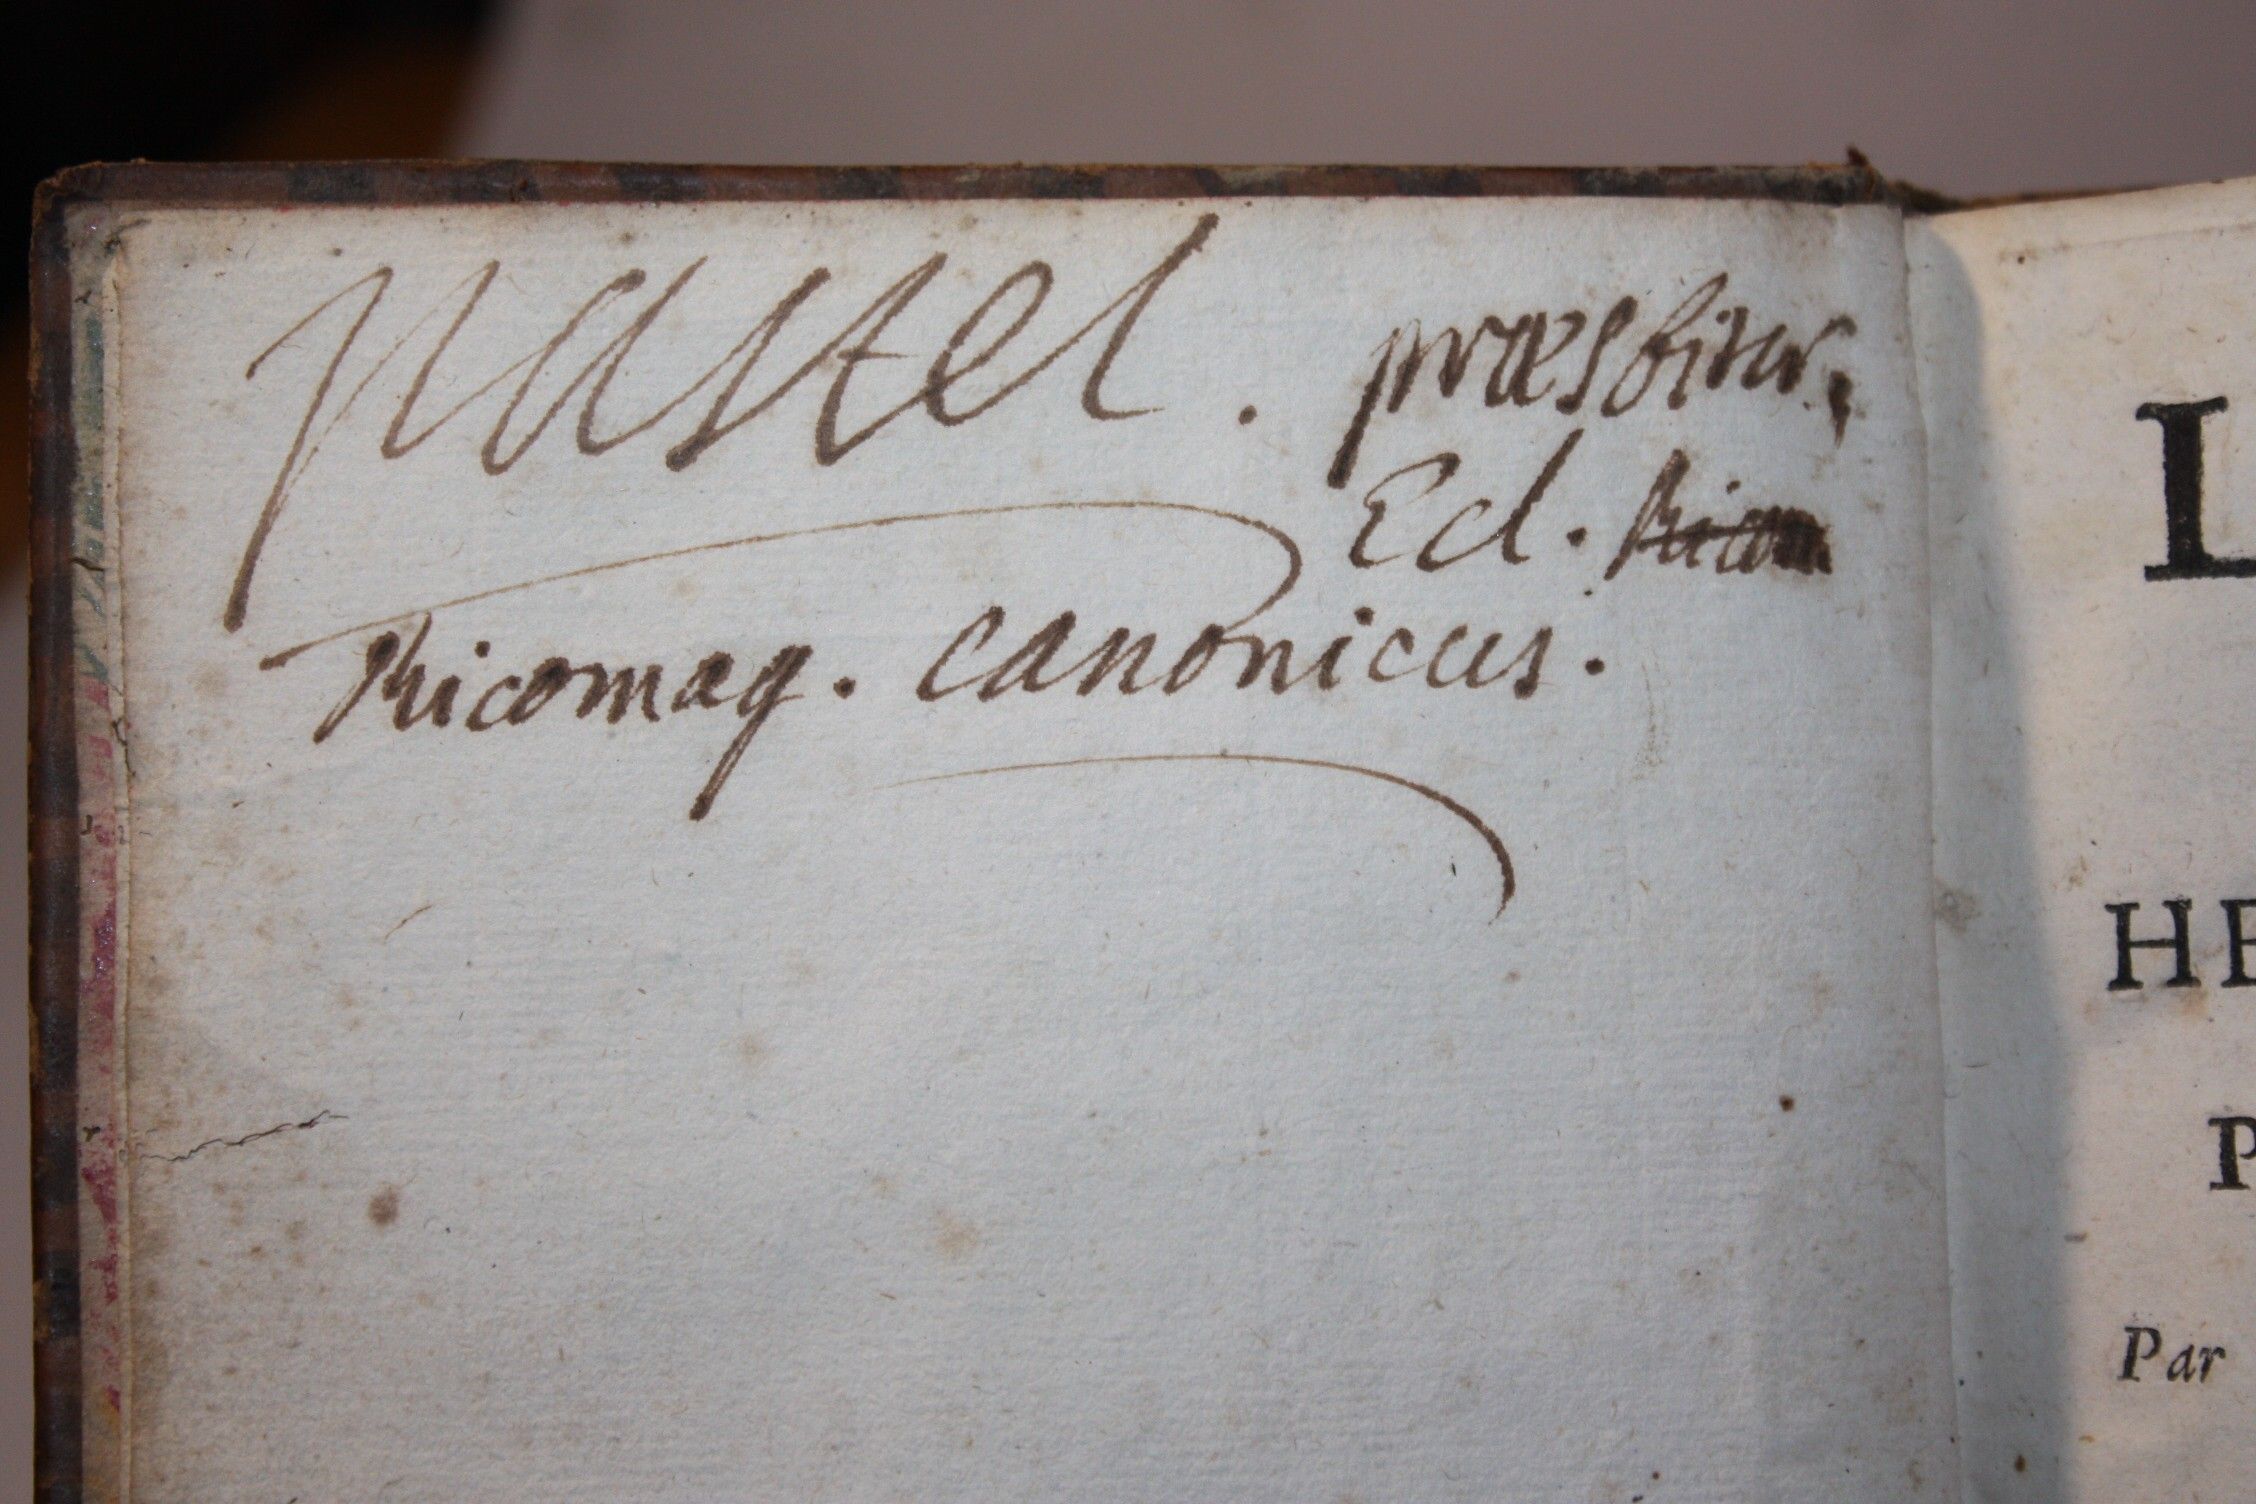 pastel. præsbiter,
Ecl. Ricom
Ricomag. canonicus.
L
HE
P
Par